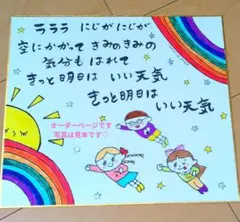 ラララ にじがにじが
空にかかって きみのきみの
気分も はれて
きっと明日は いい天気
きっと明日は
いい天気
オーダーページです
写真は見本です♡